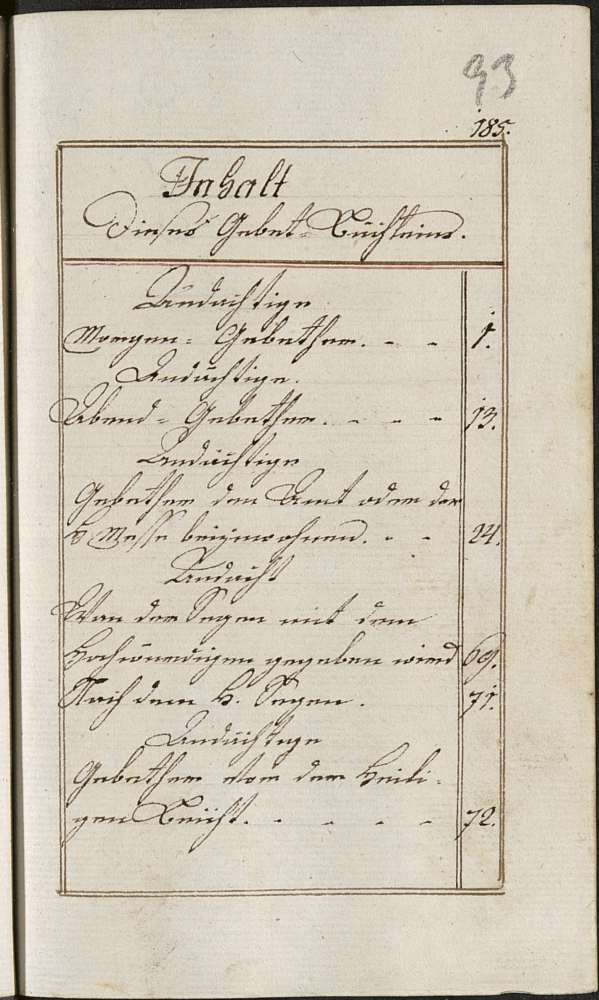 93
185.
Inhalt
Dieses Gebet-Büchleins.
Andächtige
Morgen- Gebether. - - 1.
Andächtige.
Abend- Gebether. - - - 13.
Andächtige
Gebether dem Amt oder der
H Messe beizuwohnen. - - 24.
Andacht
Wan der Segen mit dem
Hochwürdigen gegeben wird 69.
Nach dem H. Segen. 71.
Andächtige
Gebether vor der Heili-
gen Beicht. - - - - - 72.